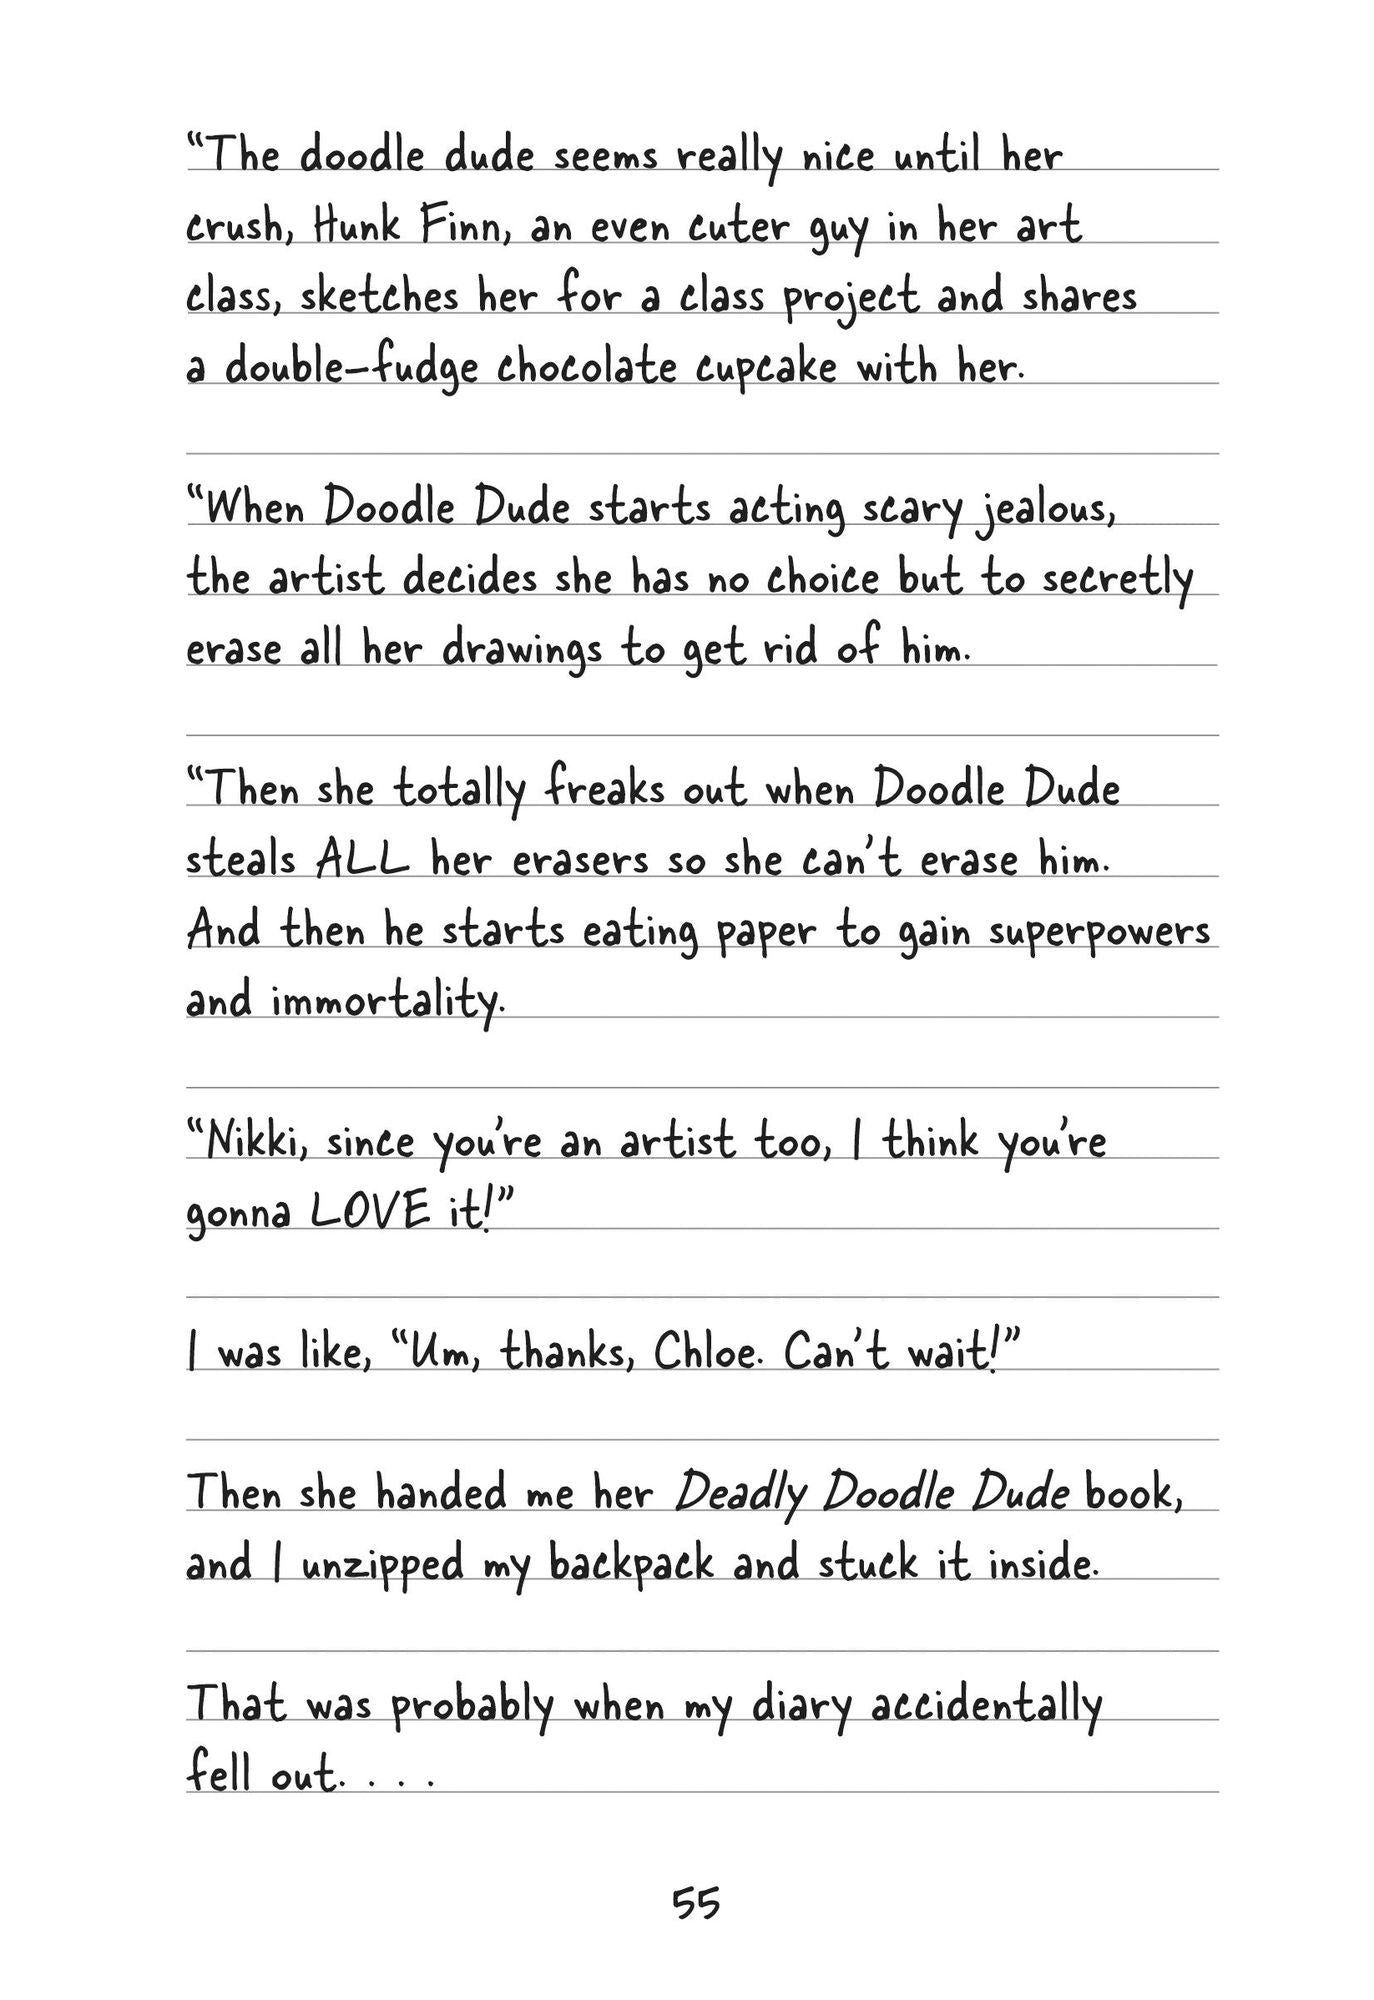 “The doodle dude seems really nice until her
crush, Hunk Finn, an even cuter guy in her art
class, sketches her for a class project and shares
a double-fudge chocolate cupcake with her.
“When Doodle Dude starts acting scary jealous,
the artist decides she has no choice but to secretly
erase all her drawings to get rid of him.
“Then she totally freaks out when Doodle Dude
steals ALL her erasers so she can’t erase him.
And then he starts eating paper to gain superpowers
and immortality.
“Nikki, since you’re an artist too, I think you’re
gonna LOVE it!”
I was like, “Um, thanks, Chloe. Can’t wait!”
Then she handed me her Deadly Doodle Dude book,
and I unzipped my backpack and stuck it inside.
That was probably when my diary accidentally
fell out. . . .
55